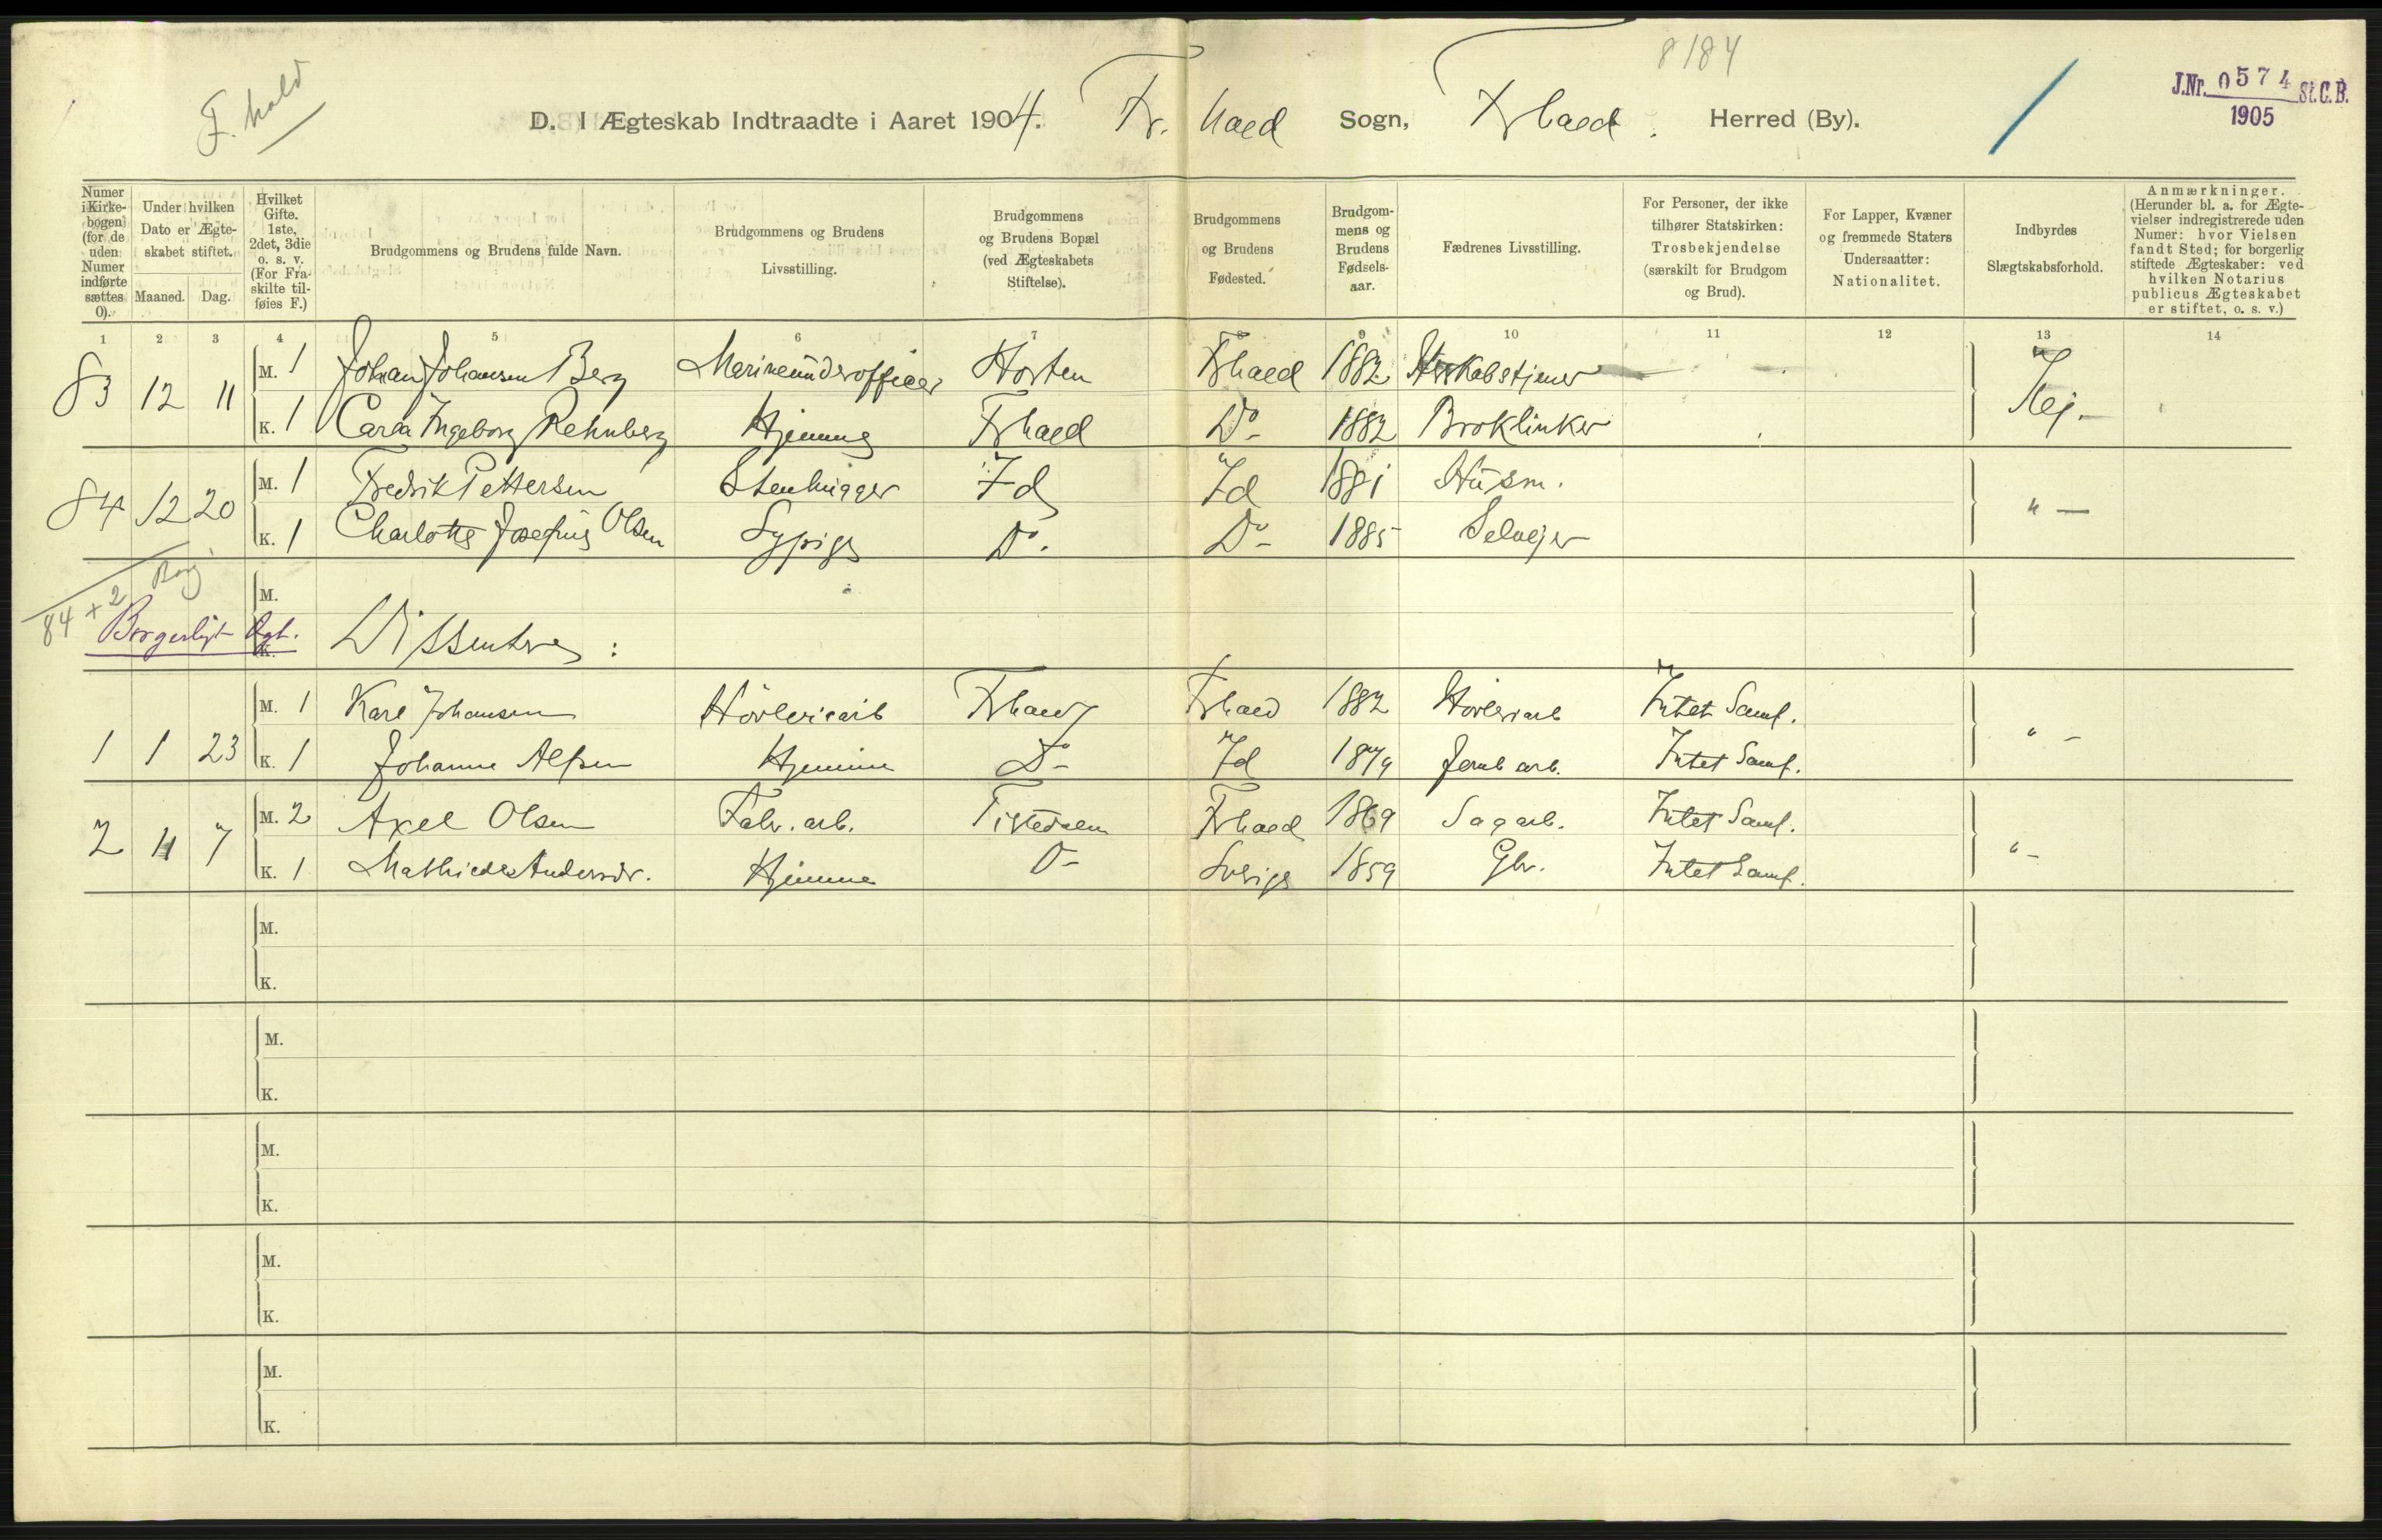 8184
F. hald
D. I Ægteskab Indtraadte i Aaret 1904. Fr. hald Sogn, Frhald. Herred (By).
J.Nr. 0574 St.C.B.
1905
Numer i Kirkebogen (for de uden Numer indførte sættes 0).
Under hvilken Dato er Ægteskabet stiftet.
Maaned. Dag.
Hvilket Gifte. 1ste, 2det, 3die o. s. v. (For Fraskilte tilføies F.)
Brudgommens og Brudens fulde Navn.
Brudgommens og Brudens Livsstilling.
Brudgommens og Brudens Bopæl (ved Ægteskabets Stiftelse).
Brudgommens og Brudens Fødested.
Brudgommens og Brudens Fødselsaar.
Fædrenes Livsstilling.
For Personer, der ikke tilhører Statskirken: Trosbekjendelse (særskilt for Brudgom og Brud).
For Lapper, Kvæner og fremmede Staters Undersaatter: Nationalitet.
Indbyrdes Slægtskabsforhold.
Anmærkninger. (Herunder bl. a. for Ægtevielser indregistrerede uden Numer: hvor Vielsen fandt Sted; for borgerlig stiftede Ægteskaber: ved hvilken Notarius publicus Ægteskabet er stiftet, o. s. v.)
1 2 3 4 5 6 7 8 9 10 11 12 13 14
83 12 11 M. 1 Johan Johansen Berg Marineunderofficer Horten Frhald 1882 Nej.
K. 1 Carla Ingeborg Rehnberg Hjemme Frhald Do 1882 Broklinker
84 12 20 M. 1 Fredrik Pettersen Stenhugger Id Id 1881 Husm. " —
K. 1 Charlotte Josefine Olsen Sypige Do. Do 1885 Selvejer
M.
84 + 2 Borg.
Borgerligt Ægt. K. Dissentere :
M. 1 Karl Johansen Høvleriarb Frhald Frhald 1882 Høvleriarb Intet Samf. " -
1 1 23 K. 1 Johanne Alfsen Hjemme Do Id 1879 Jernb arb. Intet Samf.
2 4 7 M. 2 Axel Olsen Fabr. arb. Tistedalen Frhald 1869 Sagarb. Intet Samf. " -
K. 1 Mathilde Andersdr. Hjemme D- Sverige 1859 Gbr. Intet Samf.
M.
K.
M.
K.
M.
K.
M.
K.
M.
K.